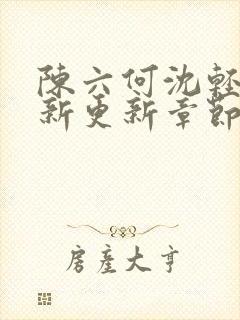 陳六何沈輕
新更新章節
房產大亨